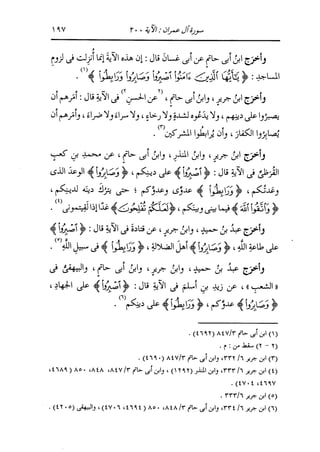 سورة آل عمران : الآية ٢٠٠ ١٩٧
وأخرج ابنُ أبى حاتم عن أبى غسانَ قال : إن هذه الآيةَ إنما أُنزلت فى لزومِ
المساجدِ : ﴿ يَٰٓأَيُّهَا ٱلَّذِينَ ءَامَنُوا۟ ٱصْبِرُوا۟ وَصَابِرُوا۟ وَرَابِطُوا۟ ﴾(١) .
وأخرج ابنُ جريرٍ ، وابنُ أبى حاتمٍ ، (٢)عن الحسنِ(٢) فى الآيةِ قال : أمَرهم أن
يصبِروا على دينِهم ، ولا يدَعوه لشدةٍ ولا رخاءٍ ، ولا سراءَ ولا ضراءَ ، وأمَرهم أن
يُصابِروا الكفارَ ، وأن يُرابِطوا المشركين(٣) .
وأخرج ابنُ جريرٍ ، وابنُ المنذرِ ، وابنُ أبى حاتمٍ ، عن محمدِ بنِ كعبٍ
القُرَظىِّ فى الآيةِ قال : ﴿ ٱصْبِرُوا۟ ﴾ على دينِكم ، ﴿ وَصَابِرُوا۟ ﴾ الوعدَ الذى
وعَدتُكم ، ﴿ وَرَابِطُوا۟ ﴾ عدوِّى وعدوَّكم ؛ حتى يترُكَ دينَه لدينِكم ،
﴿ وَٱتَّقُوا۟ ٱللَّهَ ﴾ فيما بينى وبينَكم ، ﴿ لَعَلَّكُمْ تُفْلِحُونَ ﴾ غدًا إذا لقِيتمونى(٤) .
وأخرج عبدُ بنُ حميدٍ ، وابنُ جريرٍ ، عن قتادةَ فى الآيةِ قال : ﴿ ٱصْبِرُوا۟ ﴾
على طاعةِ اللهِ ، ﴿ وَصَابِرُوا۟ ﴾ أهلَ الضلالةِ ، ﴿ وَرَابِطُوا۟ ﴾ فى سبيلِ اللهِ(٥) .
وأخرج عبدُ بنُ حميدٍ ، وابنُ جريرٍ ، وابنُ أبى حاتمٍ ، والبيهقىُّ فى
« الشعبِ » ، عن زيدِ بنِ أسلمَ فى الآيةِ قال : ﴿ ٱصْبِرُوا۟ ﴾ على الجهادِ ،
﴿ وَصَابِرُوا۟ ﴾ عدوَّكم ، ﴿ وَرَابِطُوا۟ ﴾ على دينِكم(٦) .
(١) ابن أبى حاتم ٨٤٧/٣ (٤٦٩٢) .
(٢ - ٢) سقط من : م .
(٣) ابن جرير ٣٣٢/٦ ، وابن أبى حاتم ٨٤٧/٣ (٤٦٩٠) .
(٤) ابن جرير ٣٣٣/٦ ، وابن المنذر (١٢٩٢) ، وابن أبى حاتم ٨٤٧/٣ ، ٨٤٨ ، ٨٥٠ (٤٦٨٩ ،
٤٦٩٧ ، ٤٧٠٤) .
(٥) ابن جرير ٣٣٣/٦ .
(٦) ابن جرير ٣٣٤/٦ ، وابن أبى حاتم ٨٤٨/٣ ، ٨٥٠ (٤٦٩٤ ، ٤٧٠٦) ، والبيهقى (٤٢٠٥) .